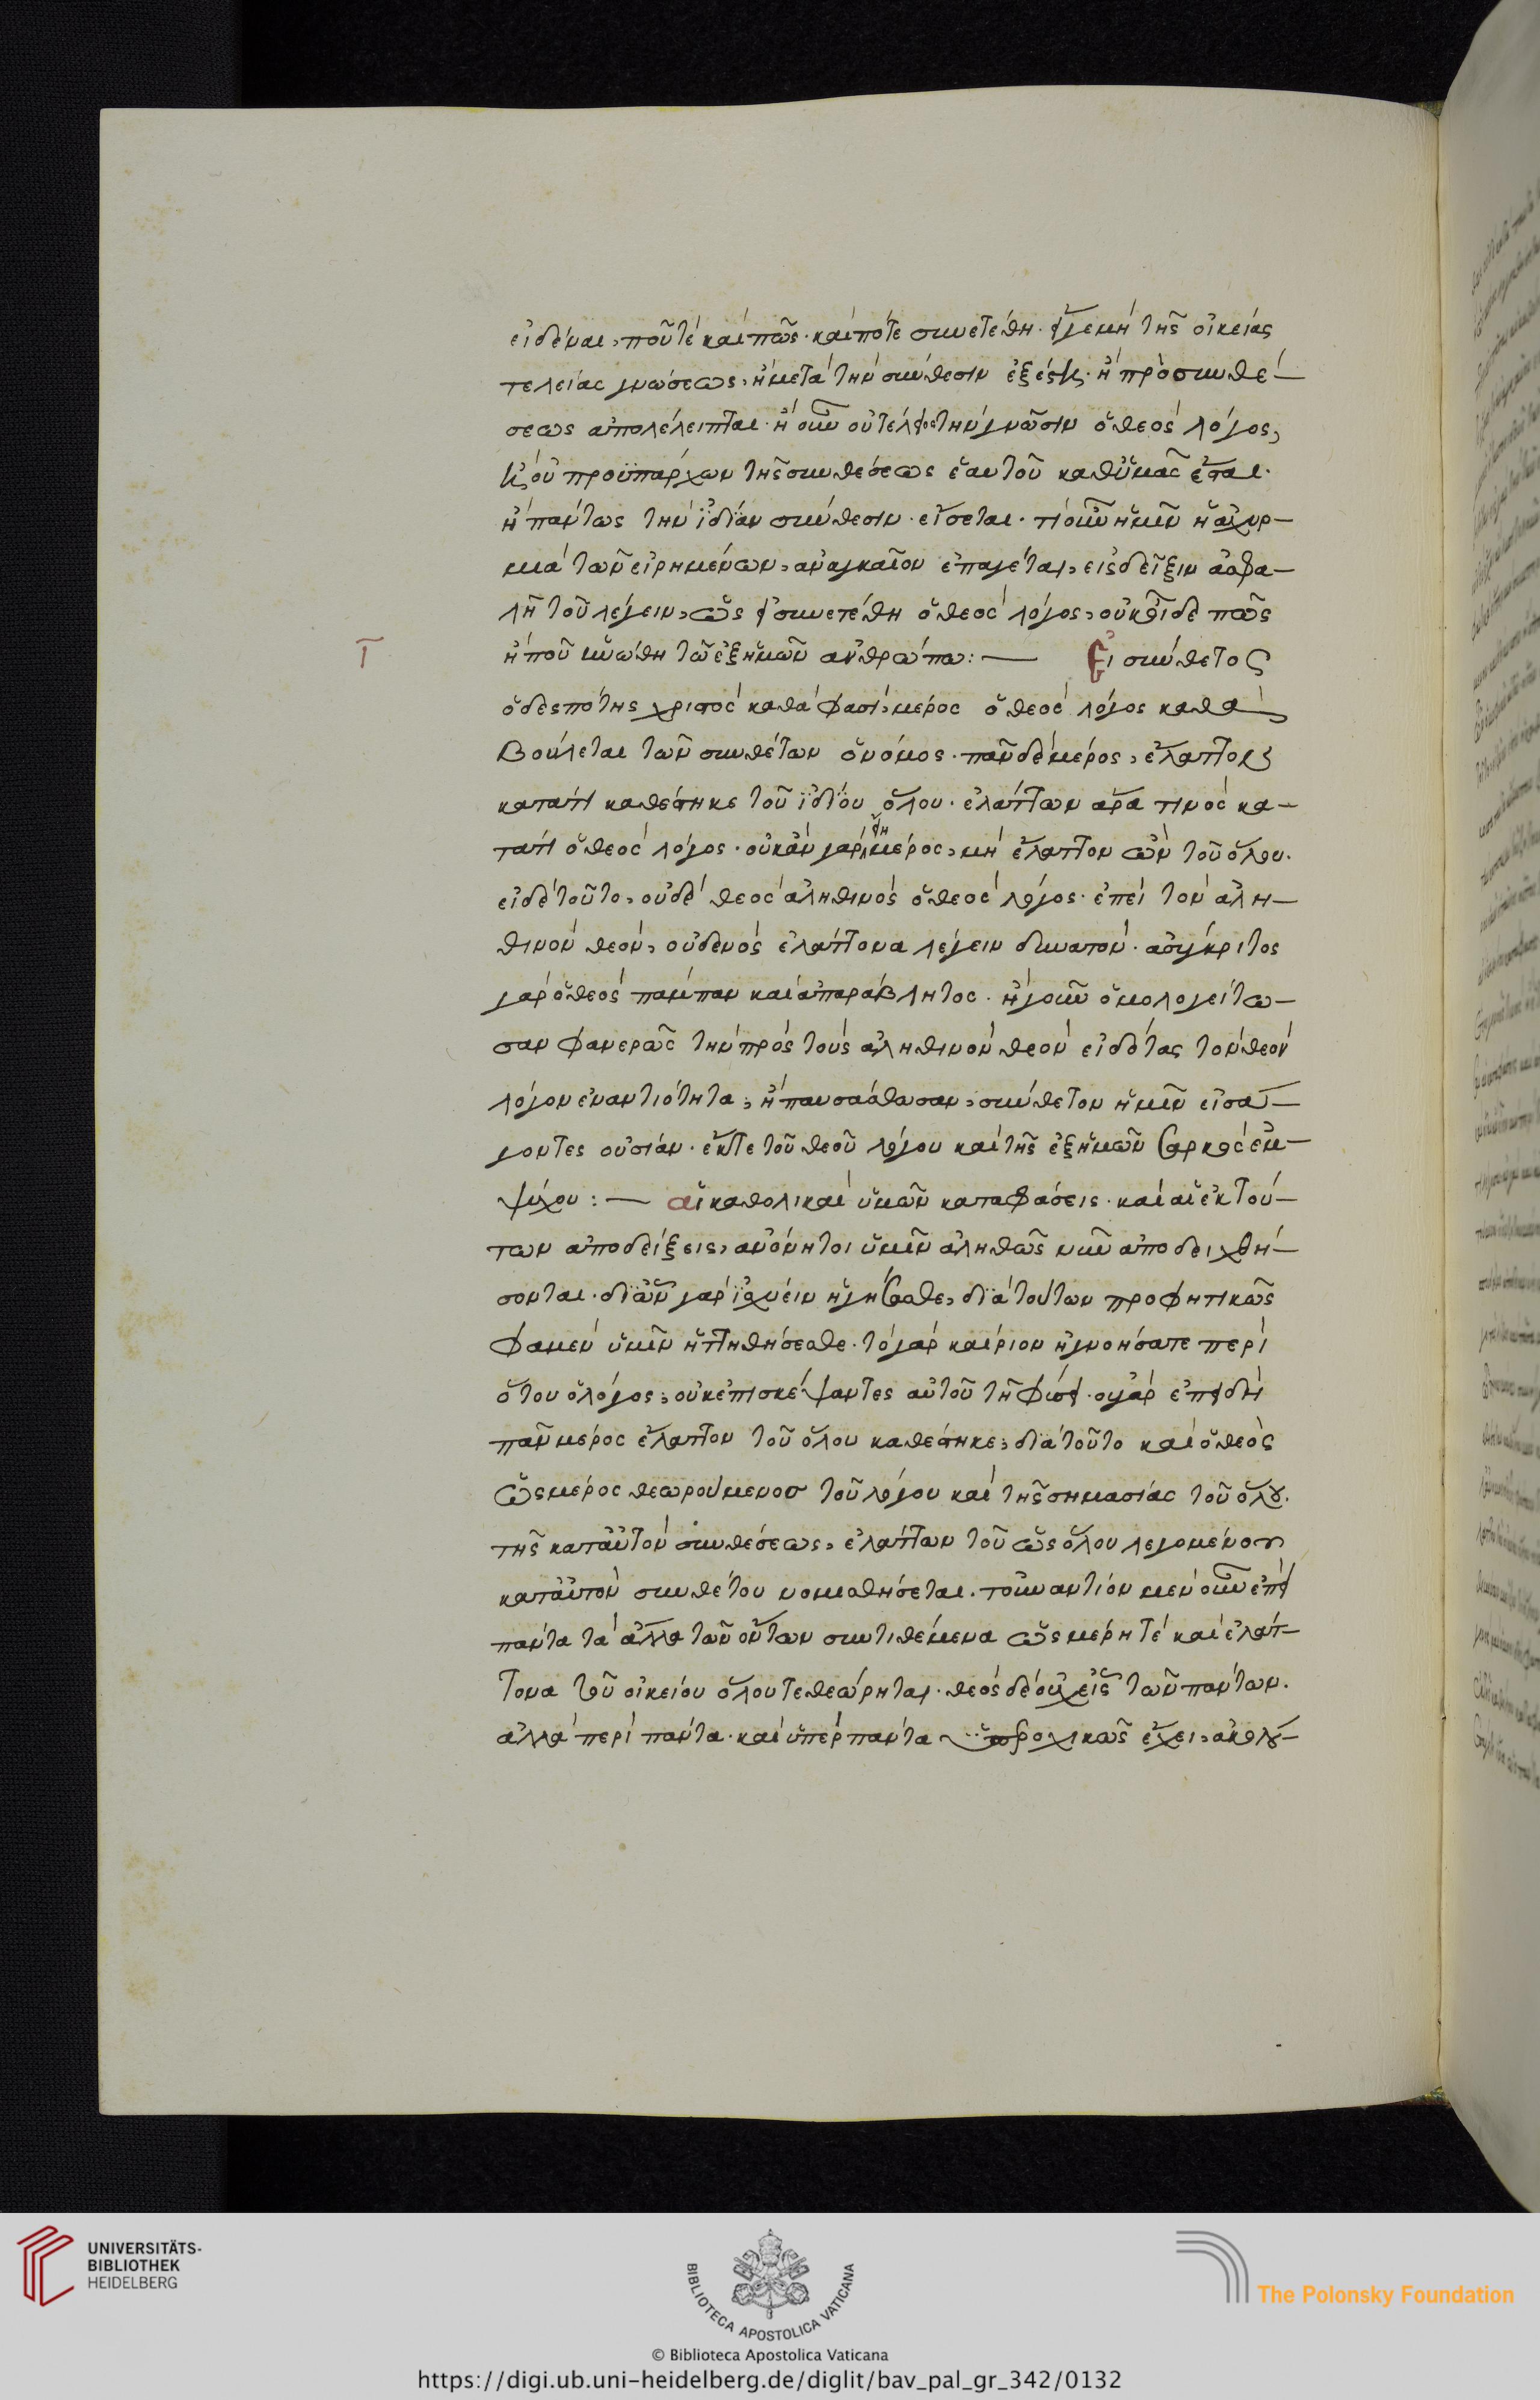 εἰδέναι, ποῦ τὲ καὶ πῶς· καὶ πότε συνετέθη· εἴγε μὴ τῆς οἰκείας
τελείας γνώσεως, ἢ μετὰ τὴν σύνθεσιν ἐξέστη· ἢ πρὸ συνθέ-
σεως ἀπολέλειπται· ἢ οὖν οὐ τέλειος τὴν γνῶσιν ὁ θεὸς λόγος,
καὶ οὐ προϋπάρχων τῆς συνθέσεως ἑαυτοῦ καθ' ὑμᾶς ἔσται·
ἢ πάντως τὴν ἰδίαν σύνθεσιν εἴσεται· τί οὖν ἡμῖν ἢ
τῶν εἰρημένων, ἀναγκαῖον ἐπάγεται, εἰς δεῖξιν ἀσφα-
λῆ τοῦ λέγειν, ὡς εἰ συνετέθη ὁ θεὸς λόγος, οὐκ οἶδε πῶς
ἢ ποῦ ἡνώθη τῶ ἐξ ἡμῶν ἀνθρώπω: — Εἰ σύνθετος
Γ
ὁ δεσπότης χριστὸς καθά φασι, μέρος ὁ θεὸς λόγος καθὰ
βούλεται τῶν συνθέτων ὁ νόμος· πᾶν δὲ μέρος, ἔλαττον
κατά τι καθέστηκε τοῦ ἰδίου ὅλου· ἐλάττων ἄρα τινὸς κα-
τά τι ὁ θεὸς λόγος· οὐκ ἂν γὰρ εἴη μέρος, μὴ ἔλαττον ὢν τοῦ ὅλου.
εἰ δὲ τοῦτο, οὐδὲ θεὸς ἀληθινὸς ὁ θεὸς λόγος· ἐπεὶ τὸν ἀλη-
θινὸν θεόν, οὐδενὸς ἐλάττονα λέγειν δυνατόν· ἀσύγκριτος
γὰρ ὁ θεὸς πάμπαν καὶ ἀπαράβλητος· ἢ γοῦν ὁμολογείτω-
σαν φανερῶς τὴν πρὸς τοὺς ἀληθινὸν θεὸν εἰδότας τὸν θεὸν
λόγον ἐναντιότητα, ἢ παυσάσθωσαν, σύνθετον ἡμῖν εἰσά-
γοντες οὐσίαν· ἔκ τε τοῦ θεοῦ λόγου καὶ τῆς ἐξ ἡμῶν σαρκὸς ἐμ-
ψύχου: — αἱ καθολικαὶ ὑμῶν καταφάσεις· καὶ αἱ ἐκ τού-
των ἀποδείξεις, ἀνόνητοι ὑμῖν ἀληθῶς νῦν ἀποδειχθή-
σονται· δι' ὧν γὰρ ἰσχύειν ἥγησθε, διὰ τούτων προφητικῶς
φαμὲν ὑμῖν ἡττηθήσεσθε· τὸ γὰρ καίριον ἠγνοήσατε περὶ
ὅτου ὁ λόγος, οὐκ ἐπισκέψαντες αὐτοῦ τῆ φύσει· οὐ γὰρ ἐπειδὴ
πᾶν μέρος ἔλαττον τοῦ ὅλου καθέστηκε, διὰ τοῦτο καὶ ὁ θεὸς
ὡς μέρος θεωρούμενος τοῦ λόγου καὶ τῆς σημασίας τοῦ ὅλου.
τῆς κατ' αὐτὸν συνθέσεως, ἐλάττων τοῦ ὡς ὅλου λεγομένου
κατ' αὐτὸν συνθέτου νομισθήσεται· τοὐναντίον μὲν οὖν ἐπεὶ
πάντα τὰ ἄλλα τῶν ὄντων συντιθέμενα ὡς μέρη τὲ καὶ ἐλάτ-
τονα τοῦ οἰκείου ὅλου τεθεώρηται· θεὸς δὲ οὐχ εἷς τῶν πάντων.
ἀλλὰ περὶ πάντα· καὶ ὑπὲρ πάντα ὑπεροχικῶς ἔχει, ἀκολού-
UNIVERSITÄTS-
BIBLIOTHEK
HEIDELBERG
BIBLIOTECA APOSTOLICA VATICANA
The Polonsky Foundation
© Biblioteca Apostolica Vaticana
https://digi.ub.uni-heidelberg.de/diglit/bav_pal_gr_342/0132